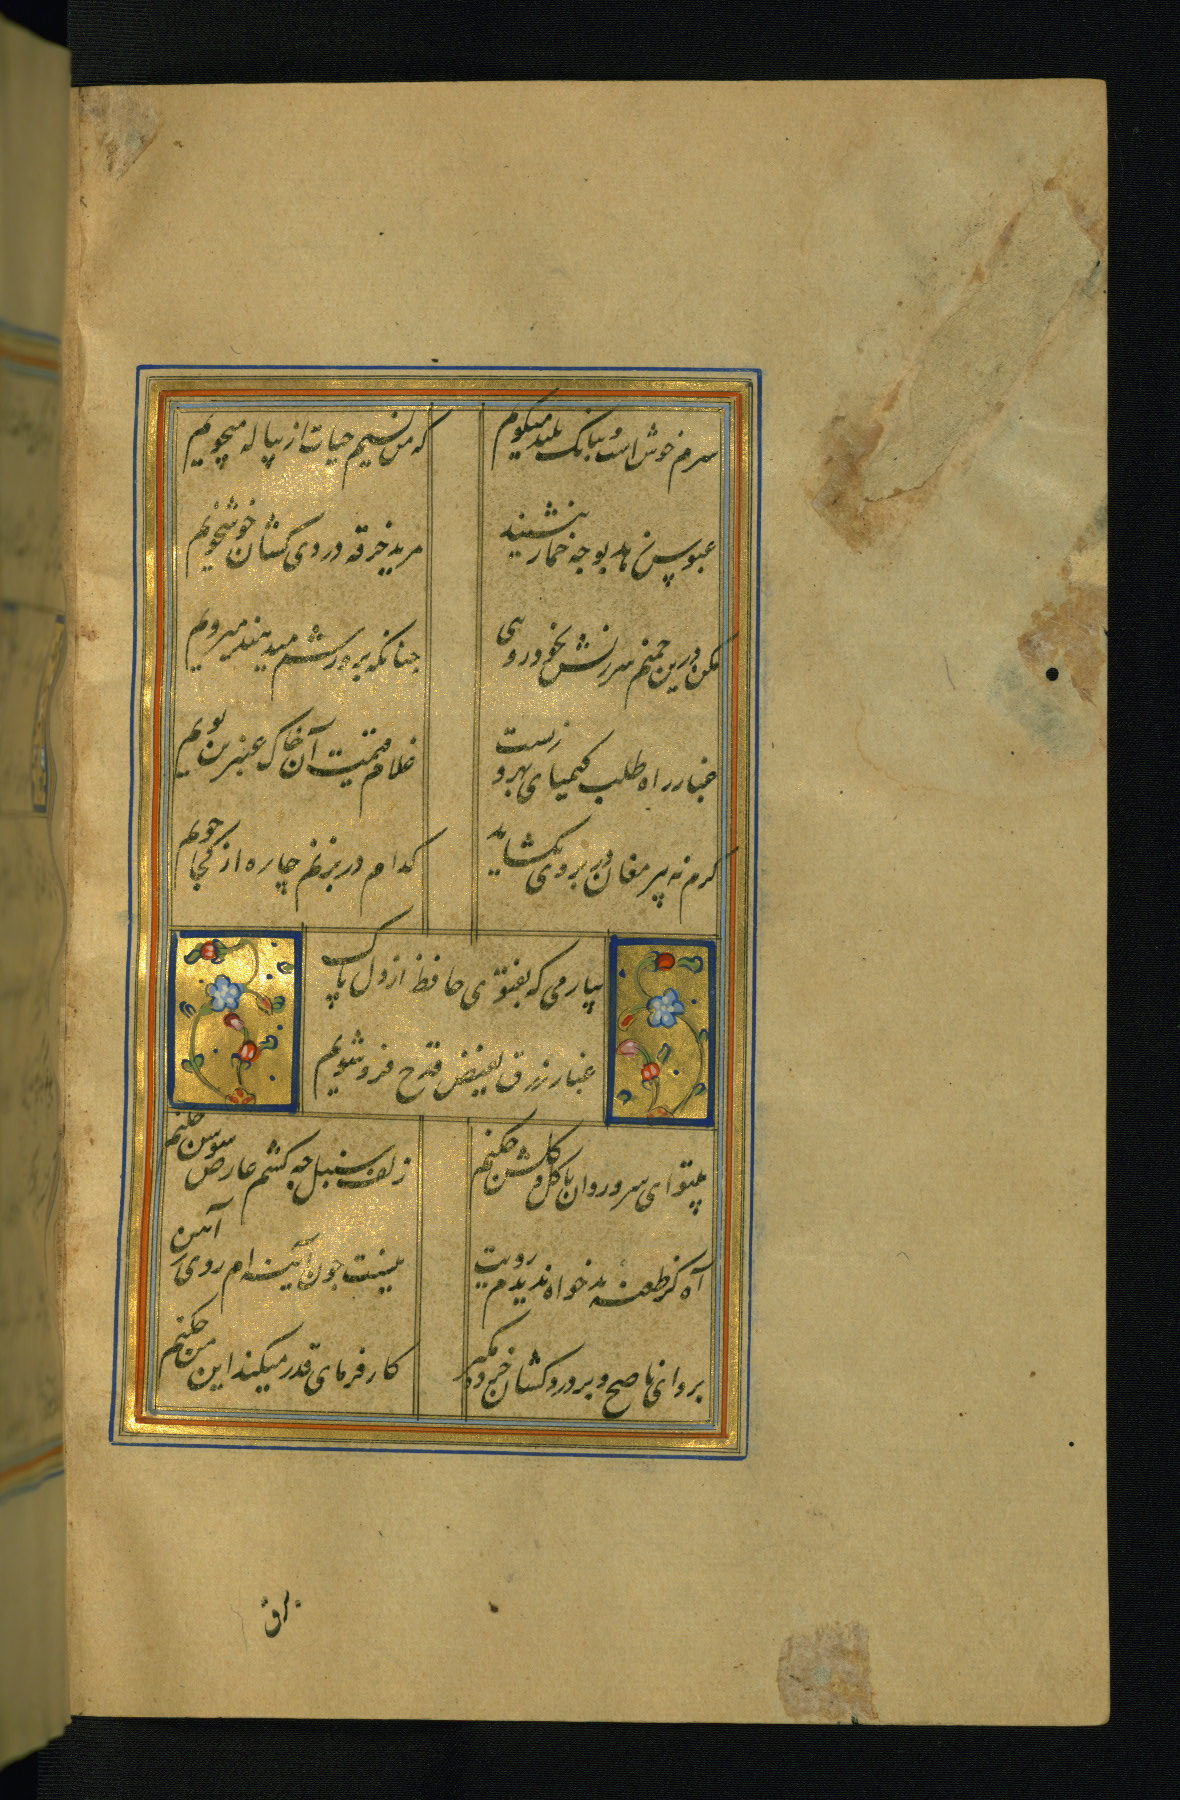 سرم خوش است و ببانک بلند میکویم
که من نسیم حیات از پیاله میجویم
عبوس زهد بوجه خمار ننشیند
مرید خرقه دردی کشان خوشخویم
مکن درین چمنم سرزنش بخودرویی
چنانکه پرورشم میدهند میرویم
غبار راه طلب کیمیای بهروزیست
غلام قیمت آن خاک عنبرین بویم
کرم نه پیر مغان در بروی بکشاید
کدام در بزنم چاره از کجا جویم
بیار می که بفتوی حافظ از دل پاک
غبار زرق بفیض قدح فروشویم
بیتو ای سرو روان با کل و کلشن چکنم
زلف سنبل چه کشم عارض سوسن چکنم
آه کز طعنه بدخواه ندیدم رویت
نیست چون آینه ام روی ز آهن
برو ای ناصح و بر دردکشان خرده مکیر
کارفرمای قدر میکند این من چکنم
برق